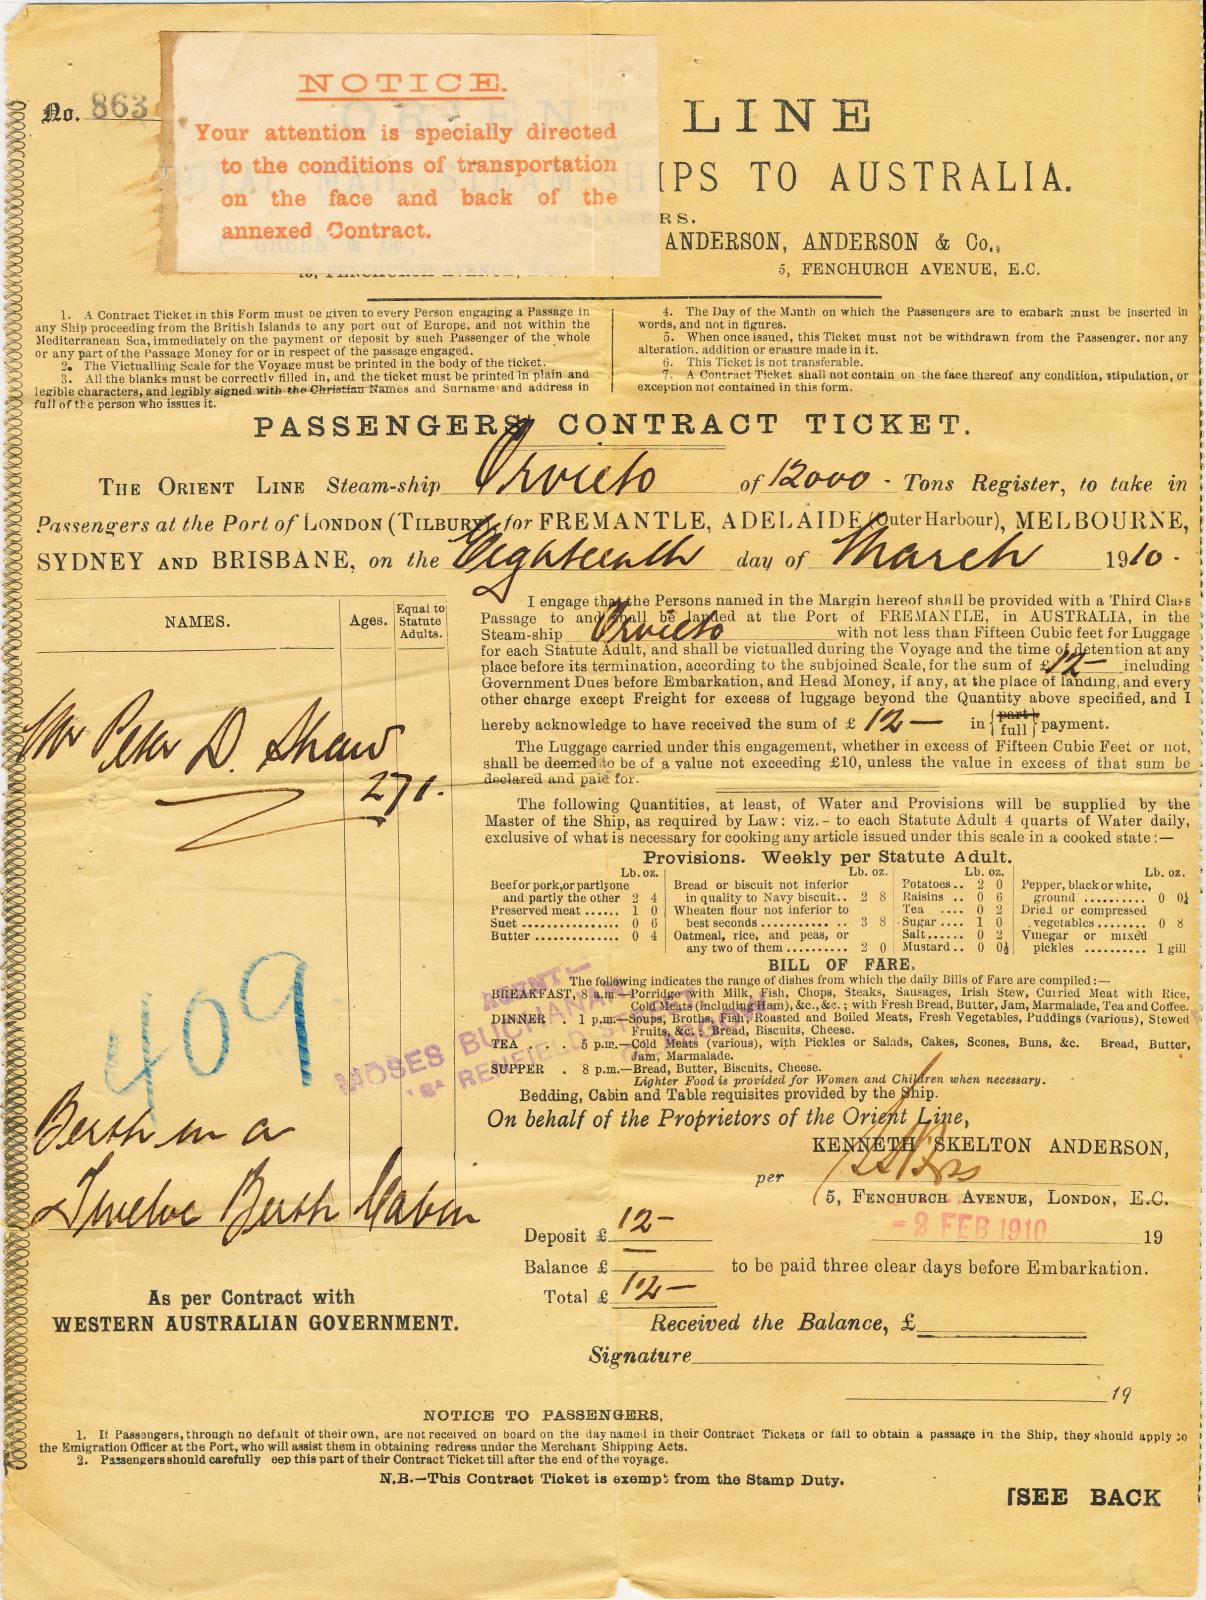 NOTICE.
Your attention is specially directed
to the conditions of transportation
on the face and back of the
annexed Contract.
No. 863
LINE
IPS TO AUSTRALIA.
RS.
ANDERSON, ANDERSON & Co.,
5, FENCHURCH AVENUE, E.C.
1. A Contract Ticket in this Form must be given to every Person engaging a Passage in
any Ship proceeding from the British Islands to any port out of Europe, and not within the
Mediterranean Sea, immediately on the payment or deposit by such Passenger of the whole
or any part of the Passage Money for or in respect of the passage engaged.
2. The Victualling Scale for the Voyage must be printed in the body of the ticket.
3. All the blanks must be correctly filled in, and the ticket must be printed in plain and
legible characters, and legibly signed with the Christian Names and Surname and address in
full of the person who issues it.
4. The Day of the Month on which the Passengers are to embark must be inserted in
words, and not in figures.
5. When once issued, this Ticket must not be withdrawn from the Passenger, nor any
alteration, addition or erasure made in it.
6. This Ticket is not transferable.
7. A Contract Ticket shall not contain on the face thereof any condition, stipulation, or
exception not contained in this form.
PASSENGERS' CONTRACT TICKET.
THE ORIENT LINE Steam-ship Orvieto of 12000 - Tons Register, to take in
Passengers at the Port of LONDON (TILBURY), for FREMANTLE, ADELAIDE (Outer Harbour), MELBOURNE,
SYDNEY AND BRISBANE, on the Eighteenth day of March 1910.
NAMES. Ages. Equal to Statute Adults.
Mr Peter D. Shaw
27 1.
409
Berth in a
Twelve Berth Cabin
As per Contract with
WESTERN AUSTRALIAN GOVERNMENT.
I engage that the Persons named in the Margin hereof shall be provided with a Third Class
Passage to and shall be landed at the Port of FREMANTLE, in AUSTRALIA, in the
Steam-ship Orvieto with not less than Fifteen Cubic feet for Luggage
for each Statute Adult, and shall be victualled during the Voyage and the time of detention at any
place before its termination, according to the subjoined Scale, for the sum of £12- including
Government Dues before Embarkation, and Head Money, if any, at the place of landing, and every
other charge except Freight for excess of luggage beyond the Quantity above specified, and I
hereby acknowledge to have received the sum of £ 12- in {part full} payment.
The Luggage carried under this engagement, whether in excess of Fifteen Cubic Feet or not,
shall be deemed to be of a value not exceeding £10, unless the value in excess of that sum be
declared and paid for.
The following Quantities, at least, of Water and Provisions will be supplied by the
Master of the Ship, as required by Law: viz.- to each Statute Adult 4 quarts of Water daily,
exclusive of what is necessary for cooking any article issued under this scale in a cooked state:—
Provisions. Weekly per Statute Adult.
Lb. oz.
Beef or pork, or partly one
and partly the other 2 4
Preserved meat ...... 1 0
Suet .............. 0 6
Butter .............. 0 4
Lb. oz.
Bread or biscuit not inferior
in quality to Navy biscuit.. 2 8
Wheaten flour not inferior to
best seconds ........... 3 8
Oatmeal, rice, and peas, or
any two of them .......... 2 0
Lb. oz.
Potatoes .. 2 0
Raisins .. 0 6
Tea .... 0 2
Sugar .... 1 0
Salt...... 0 2
Mustard.. 0 0½
Lb. oz.
Pepper, black or white,
ground .......... 0 0¼
Dried or compressed
vegetables ........ 0 8
Vinegar or mixed
pickles .......... 1 gill
BILL OF FARE.
The following indicates the range of dishes from which the daily Bills of Fare are compiled:—
BREAKFAST, 8 a.m.—Porridge with Milk, Fish, Chops, Steaks, Sausages, Irish Stew, Curried Meat with Rice,
Cold Meats (including Ham), &c., &c.; with Fresh Bread, Butter, Jam, Marmalade, Tea and Coffee.
DINNER . 1 p.m.—Soups, Broths, Fish, Roasted and Boiled Meats, Fresh Vegetables, Puddings (various), Stewed
Fruits, &c.; Bread, Biscuits, Cheese.
TEA . . 5 p.m.—Cold Meats (various), with Pickles or Salads, Cakes, Scones, Buns, &c. Bread, Butter,
Jam, Marmalade.
SUPPER . 8 p.m.—Bread, Butter, Biscuits, Cheese.
Lighter Food is provided for Women and Children when necessary.
Bedding, Cabin and Table requisites provided by the Ship.
AGENT:—
MOSES BUCHANAN
RENFIELD STREET
GLASGOW
On behalf of the Proprietors of the Orient Line,
KENNETH SKELTON ANDERSON,
per
5, FENCHURCH AVENUE, LONDON, E.C.
- 2 FEB 1910 19
Deposit £ 12-
Balance £ — to be paid three clear days before Embarkation.
Total £ 12-
Received the Balance, £
Signature
19
NOTICE TO PASSENGERS.
1. If Passengers, through no default of their own, are not received on board on the day named in their Contract Tickets or fail to obtain a passage in the Ship, they should apply to
the Emigration Officer at the Port, who will assist them in obtaining redress under the Merchant Shipping Acts.
2. Passengers should carefully eep this part of their Contract Ticket till after the end of the voyage.
N.B.—This Contract Ticket is exempt from the Stamp Duty.
[SEE BACK